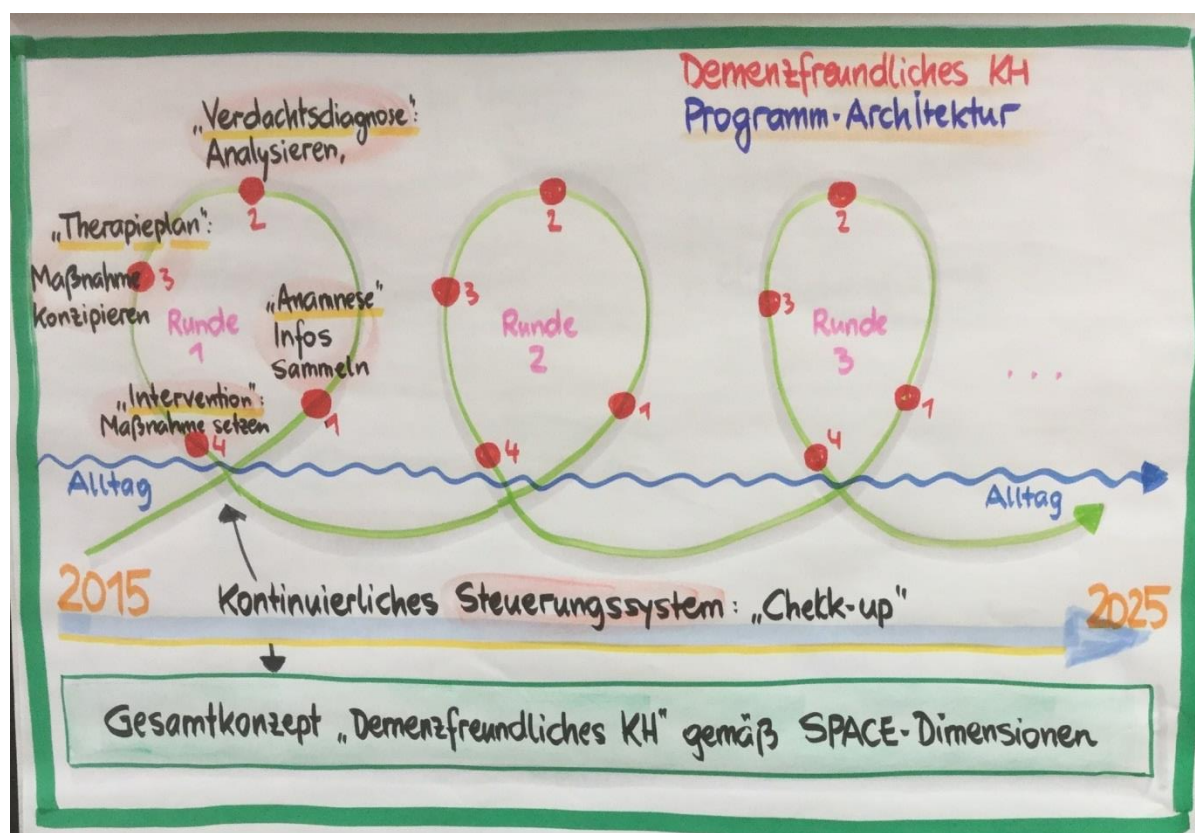 Demenzfreundliches KH
Programm-Architektur
„Verdachtsdiagnose":
Analysieren,
2
„Therapieplan":
Maßnahme
konzipieren
3
Runde
1
„Anamnese"
Infos
sammeln
1
„Intervention":
Maßnahme setzen
4
2
3
Runde
2
1
4
2
3
Runde
3
1
4
...
Alltag
Alltag
2015
2025
Kontinuierliches Steuerungssystem: „Check-up"
Gesamtkonzept „Demenzfreundliches KH" gemäß SPACE-Dimensionen